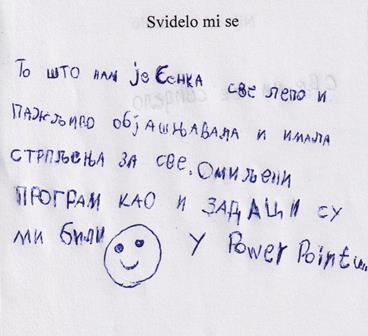 Svidelo mi se
То што нам је Сенка све лепо и
ПАЖЉИВО објАШЊАВАЛА и имала
СТРПЉЕЊА ЗА СВЕ. ОМИЉЕНИ
ПРОГРАМ КАО И ЗАДАЦИ СУ
МИ били У Power Pointu...